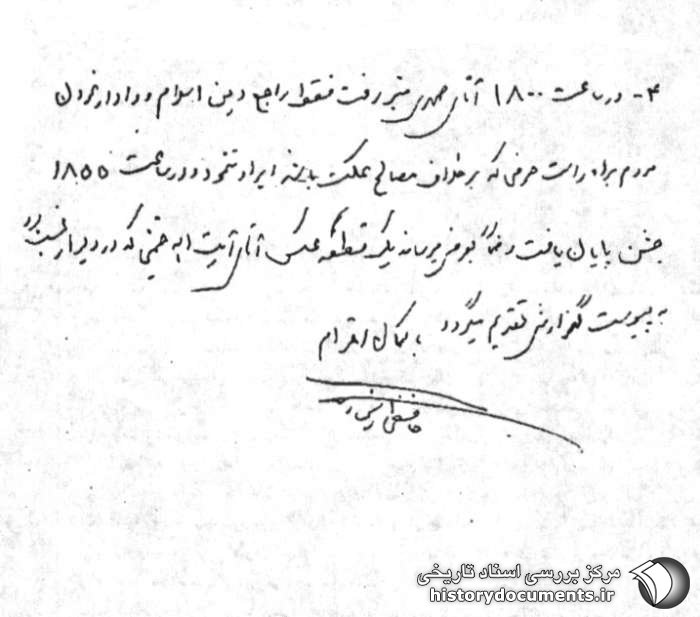 ۴- در ساعت ۱۸۰۰ آقای مهدی منبر رفت فقط راجع دین اسلام و وادار نمودن
مردم براه راست حرفی که بر خلاف مصالح مملکت باشد ایراد ننمود و در ساعت ۱۸۵۵
جشن پایان یافت و ضمناً بعرض میرساند یک قطعه عکس آقای آیت اله خمینی که در دیوار نصب بود
به پیوست گزارش تقدیم میگردد با کمال احترام
مرکز بررسی اسناد تاریخی
historydocuments.ir